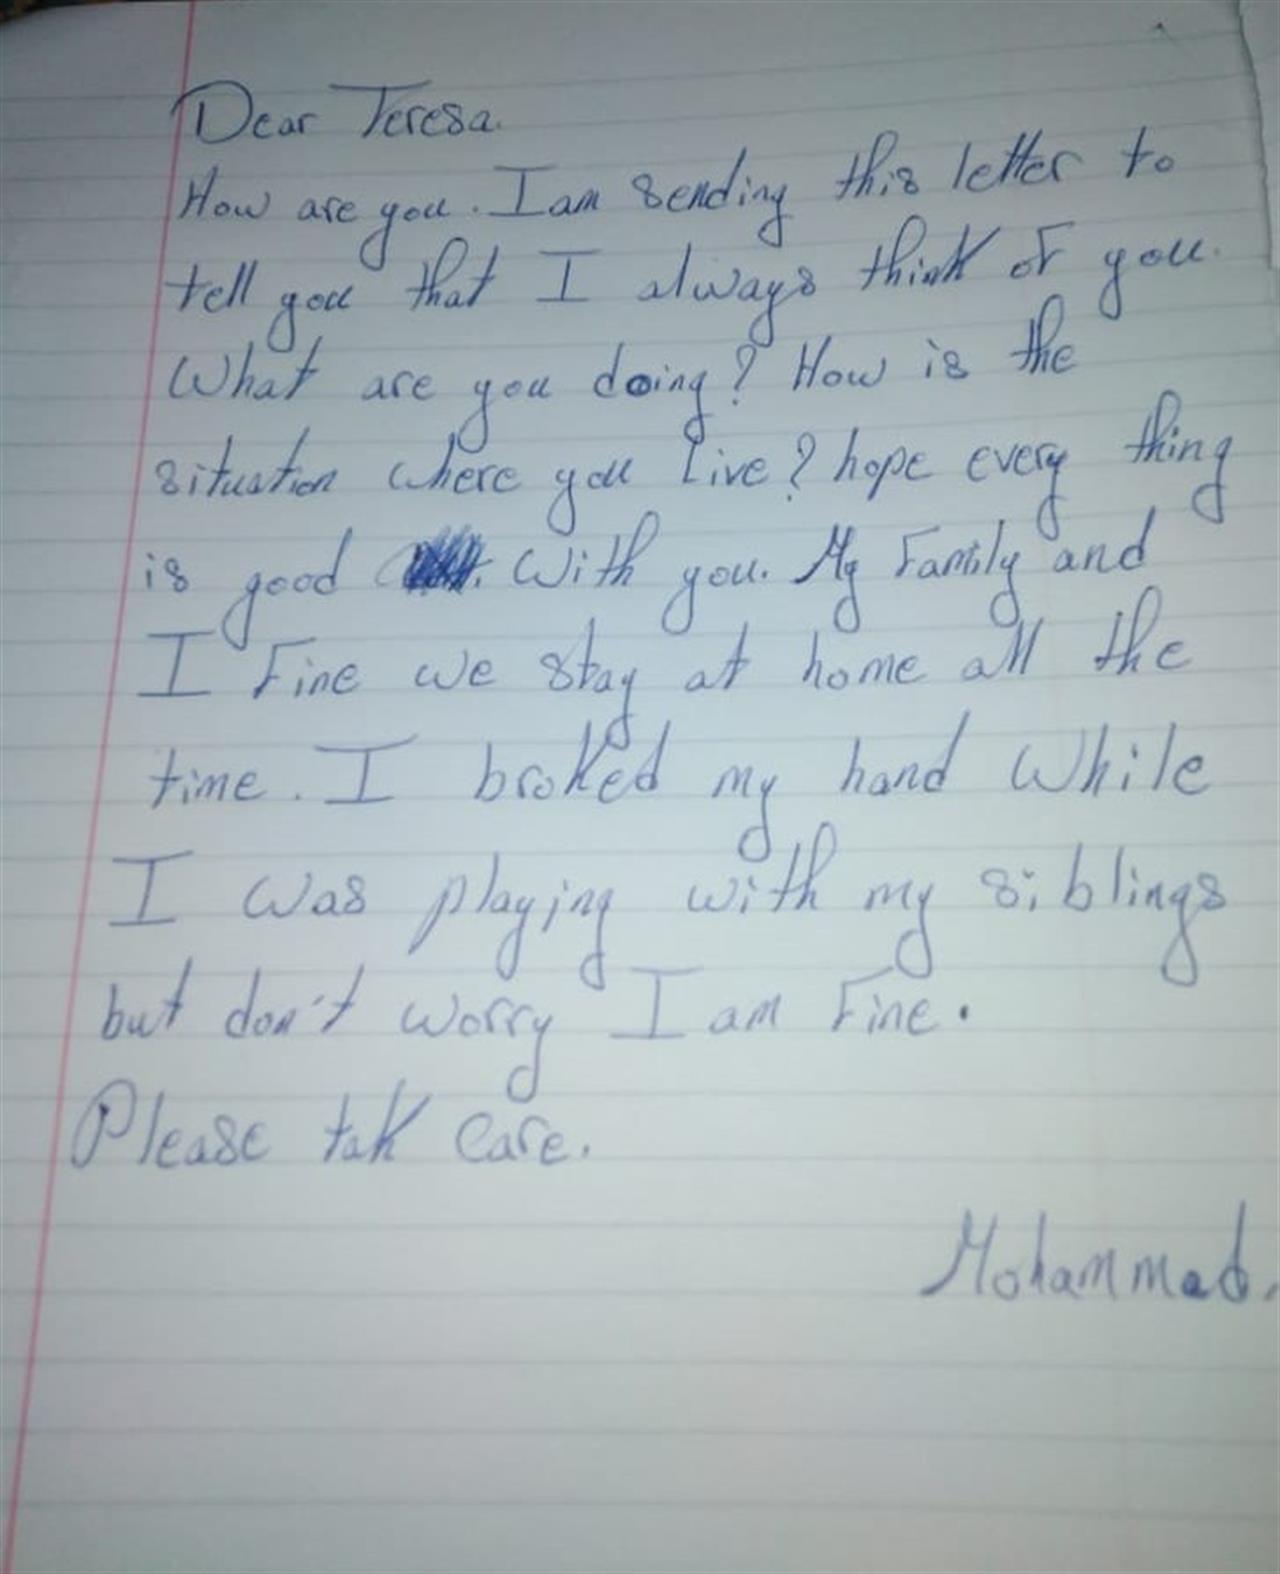 Dear Teresa.
How are you. I am sending this letter to
tell you that I always think of you.
What are you doing? How is the
situation where you live? hope every thing
is good with you. My Family and
I Fine we stay at home all the
time. I broked my hand while
I was playing with my siblings
but don't worry I am Fine.
Please tak care.
Mohammad.